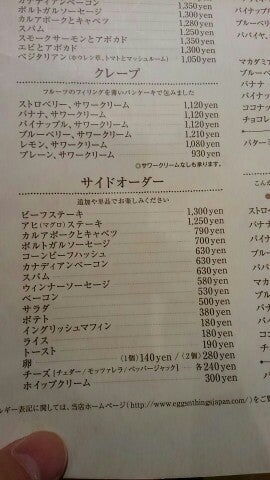 カナディアンベーコン 1,350yen
ポルトガルソーセージ 1,350yen
カルアポークとキャベツ 1,280yen
スパム 1,250yen
スモークサーモンとアボカド 1,350yen
エビとアボカド 1,350yen
ベジタリアン(ホウレン草、トマトとマッシュルーム) 1,050yen
クレープ
フルーツのフィリングを薄いパンケーキで包みました
ストロベリー、サワークリーム 1,120yen
バナナ、サワークリーム 1,120yen
パイナップル、サワークリーム 1,120yen
ブルーベリー、サワークリーム 1,210yen
レモン、サワークリーム 1,080yen
プレーン、サワークリーム 930yen
◎サワークリームなしも承ります。
サイドオーダー
追加や単品でお楽しみください
ビーフステーキ 1,300yen
アヒ(マグロ)ステーキ 1,250yen
カルアポークとキャベツ 790yen
ポルトガルソーセージ 700yen
コーンビーフハッシュ 630yen
カナディアンベーコン 630yen
スパム 630yen
ウィンナーソーセージ 580yen
ベーコン 530yen
サラダ 500yen
ポテト 380yen
イングリッシュマフィン 180yen
ライス 180yen
トースト 190yen
卵 (1個)140yen/(2個)280yen
チーズ[チェダー/モッツァレラ/ペッパージャック] 各240yen
ホイップクリーム 300yen
ルギー表記に関しては、当店ホームページ(http://www.eggsnthingsjapan.com/)をご
パイナップ
ブルーベリ
パパイヤ、
マカダミア
バナナ
パイナップ
ココナッツ
チョコレ
バターミ